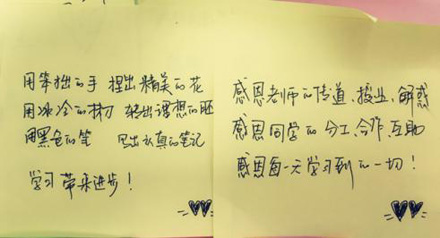 用笨拙的手 捏出精美的花
用冰冷的材 转出理想的胚
用黑色的笔 写出认真的笔记
学习带来进步！
感恩老师的传道、授业、解惑
感恩同学的分工、合作、互助
感恩每一天学习到的一切！